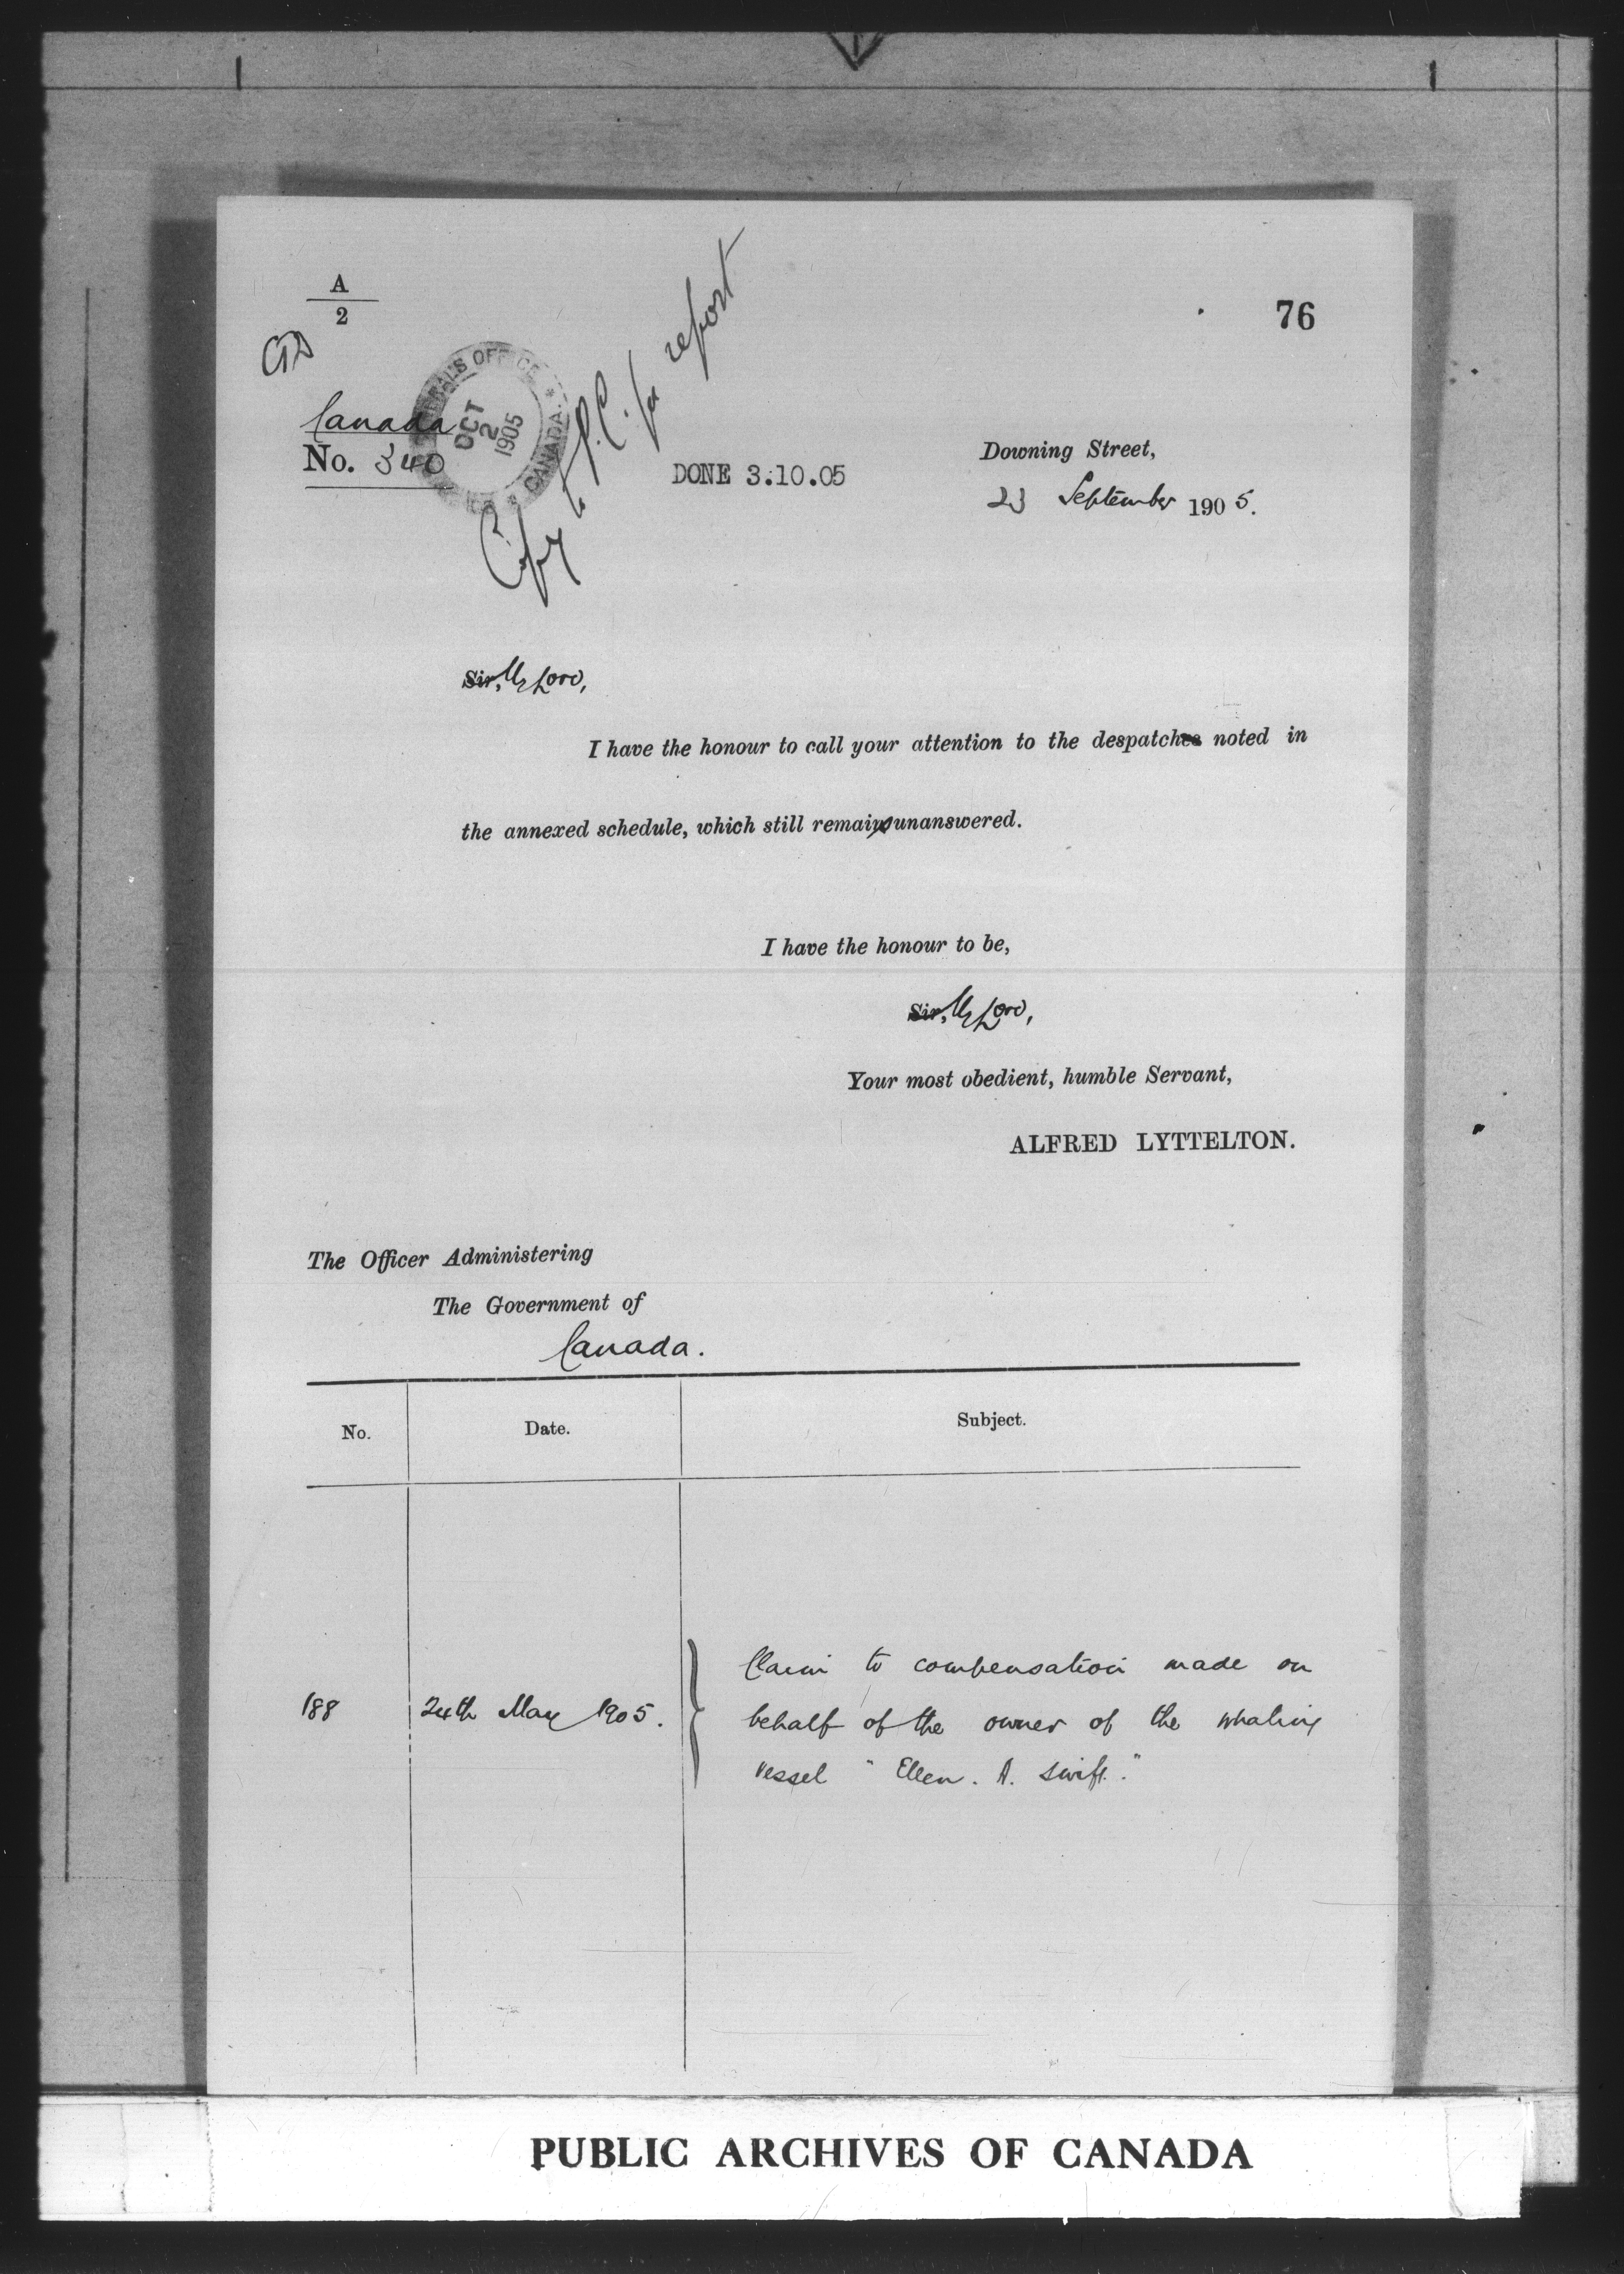 A
2
76
Canada
No. 340
OCT
2
1905
CANADA
Copy to P.C. for report
DONE 3.10.05
Downing Street,
23 September 1905.
Sir, My Lord,
I have the honour to call your attention to the despatches noted in
the annexed schedule, which still remain unanswered.
I have the honour to be,
Sir, My Lord,
Your most obedient, humble Servant,
ALFRED LYTTELTON.
The Officer Administering
The Government of
Canada.
No. Date. Subject.
Claim to compensation made on
188 24th May 1905. behalf of the owner of the whaling
vessel "Ellen. A. Swift."
PUBLIC ARCHIVES OF CANADA